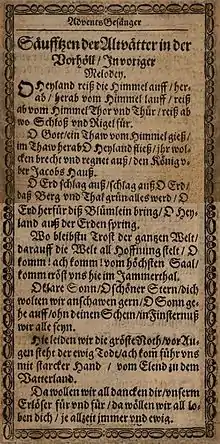 Advents Gesänger
Säufftzen der Altvätter in der
Vorhöll / In voriger
Melodey.
O Heyland reiß die Himmel auff / her-
ab / herab vom Himmel lauff / reiß
ab vom Himmel Thor vnd Thür / reiß ab
wo Schloß vnd Rigel für.
O Gott / ein Thaw vom Himmel gieß /
im Thaw herab O Heyland fließ / jhr wol-
cken brecht vnd regnet auß / den König v-
ber Jacobs Hauß.
O Erd schlag auß / schlag auß O Erd /
daß Berg vnd Thal grün alles werd / O
Erd herfür diß Blümlein bring / O Hey-
land auß der Erden spring.
Wo bleibstu Trost der gantzen Welt /
darauff die Welt all Hoffnung stelt / O
komm / ach komm vom höchsten Saal /
komm tröst vns hie im Jammerthal.
O klare Sonn / O schöner Stern / dich
wolten wir anschawen gern / O Sonn ge-
he auff / ohn deinen Schein / in Finsternuß
wir alle seyn.
Hie leiden wir die gröste Noth / vor Au-
gen steht der ewig Todt / ach kom führ vns
mit starcker Hand / vom Elend zu dem
Vatterland.
Da wollen wir all dancken dir / vnserm
Erlöser für vnd für / da wöllen wir all lo-
ben dich / je allzeit jmmer vnd ewig.